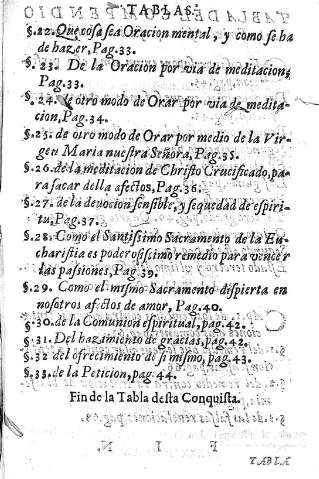 TABLAS.
§.22. Que cosa sea Oracion mental, y como se ha
de hazer, Pag.33.
§. 23. De la Oracion por via de meditacion,
Pag.33.
§. 24. de otro modo de Orar por via de medita-
cion, Pag.34.
§.25. de otro modo de Orar por medio de la Vir-
gen Maria nuestra Señora, Pag.35.
§.26. de la meditacion de Christo Crucificado, pa-
ra sacar della afectos, Pag.36.
§.27. de la deuocion sensible, y sequedad de espiri-
tu, Pag.37.
§.28. Como el Santissimo Sacramento de la Eu-
charistia es poderosissimo remedio para vencer
las passiones, Pag.39.
§.29. Como el mismo Sacramento dispierta en
nosotros afectos de amor, Pag.40.
§.30. de la Comunion espiritual, pag.42.
§.31. Del hazimiento de gracias, pag.42.
§.32 del ofrecimiento de si mismo, pag.43.
§.33. de la Peticion, pag.44.
Fin de la Tabla desta Conquista.
TABLA